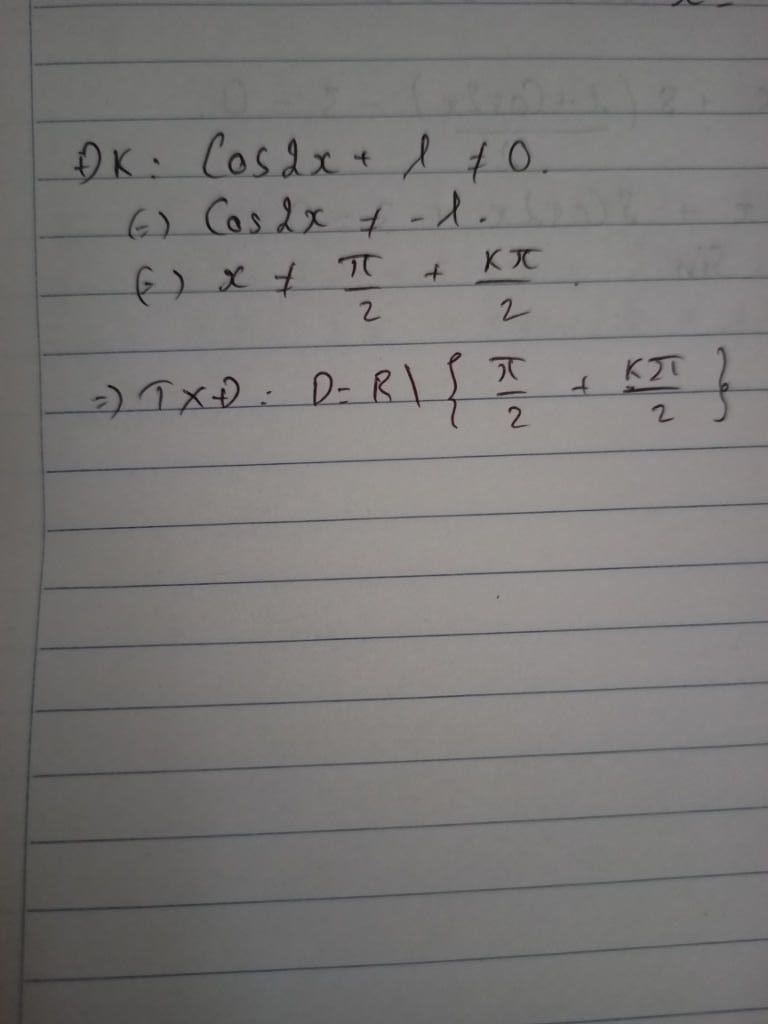 ĐK: Cos2x + 1 ≠ 0.
(=) Cos2x ≠ -1.
(=) x ≠ π/2 + kπ/2.
=) TXĐ: D = R \ { π/2 + kπ/2 }